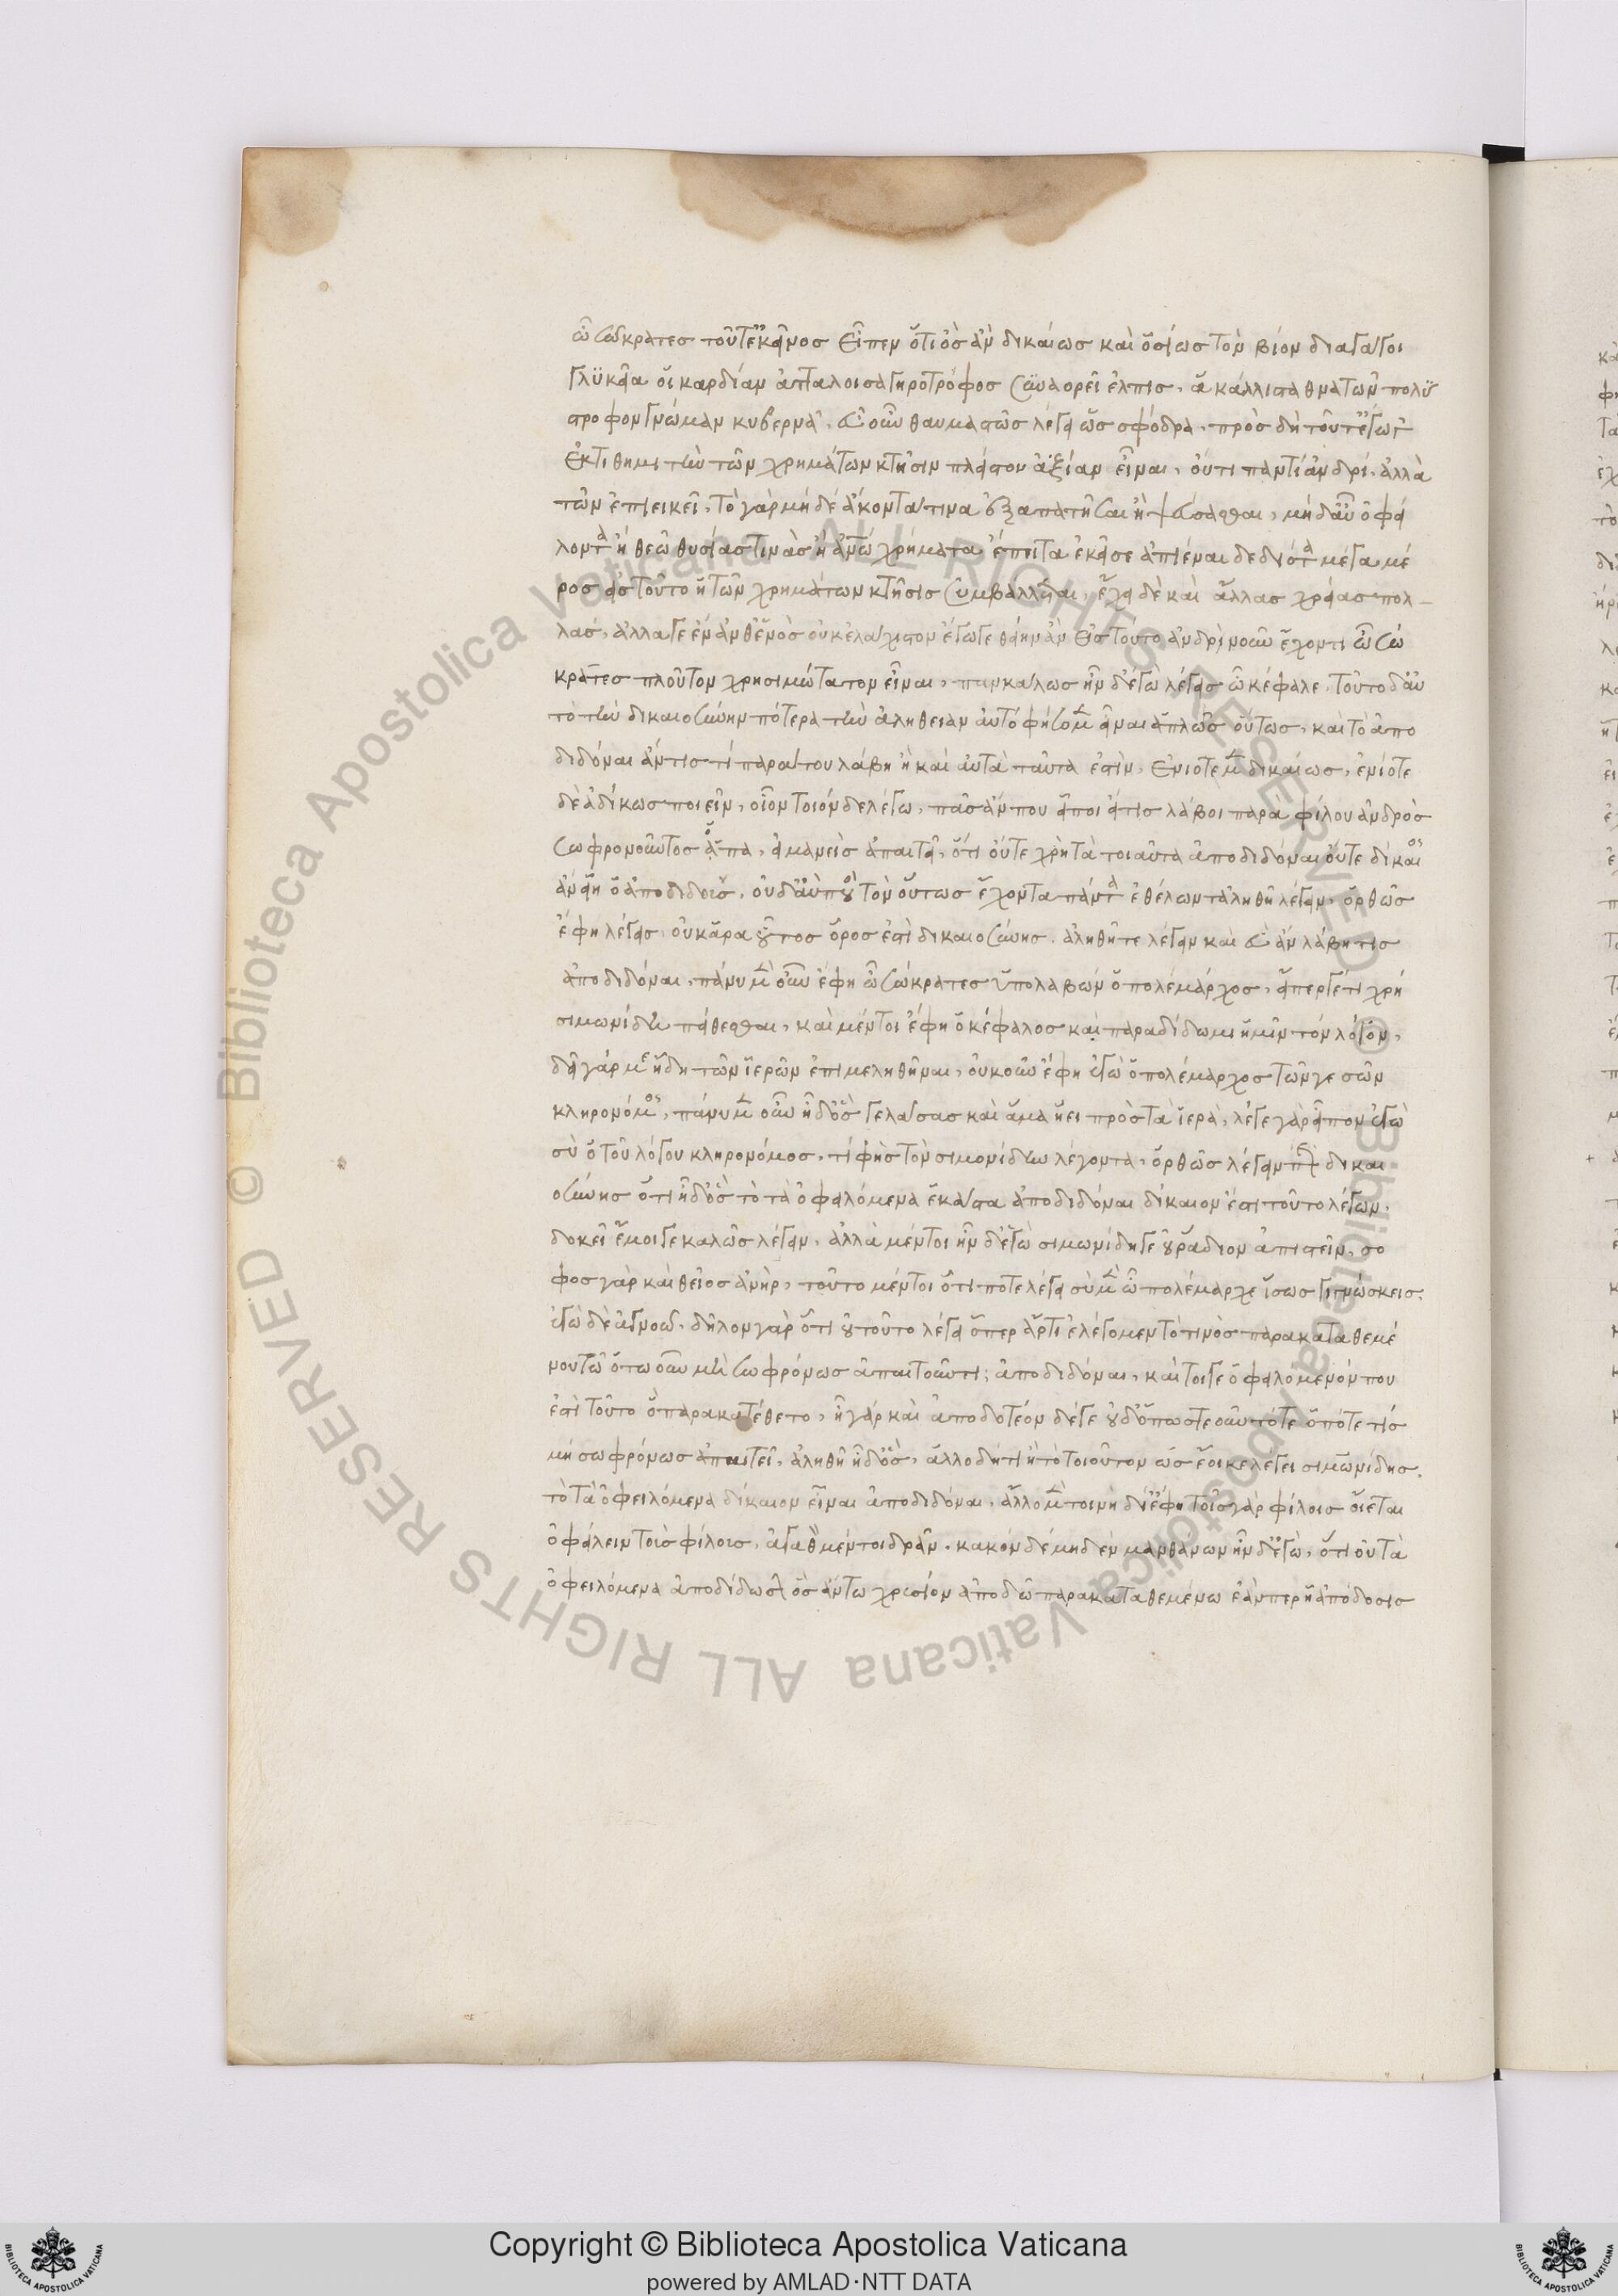 ὦ σώκρατες τοῦτ' ἐκεῖνος εἶπεν ὅτι ὃς ἂν δικαίως καὶ ὁσίως τὸν βίον διαγάγοι
γλυκεῖα οἱ καρδίαν ἀτάλοισα γηροτρόφος συναορεῖ ἐλπὶς, ἃ κάλλιστα θνατῶν πολύ
στροφον γνώμαν κυβερνᾶ. εὖ οὖν θαυμαστῶς λέγει ὡς σφόδρα. πρὸς δὴ τοῦτ' ἔγωγε
ἐκτίθημι τὴν τῶν χρημάτων κτῆσιν πλείστου ἀξίαν εἶναι, οὔτι παντὶ ἀνδρὶ, ἀλλὰ
τῶν ἐπιεικεῖ, τὸ γὰρ μηδὲ ἄκοντά τινα ἐξαπατῆσαι ἢ ψεύσασθαι, μηδ' αὖ ὀφεί
λοντα ἢ θεῶ θυσίας τινὰς ἢ ἀνθρώπω χρήματα ἔπειτα ἐκεῖσε ἀπιέναι δεδιότα μέγα μέ
ρος εἰς τοῦτο ἡ τῶν χρημάτων κτῆσις συμβάλλεται, ἔχει δὲ καὶ ἄλλας χρείας πολ
λάς, ἀλλά γε ἓν ἀνθ' ἑνὸς οὐκ ἐλάχιστον ἔγωγε θείην ἂν εἰς τοῦτο ἀνδρὶ νοῦν ἔχοντι ὦ σώ
κρατες πλοῦτον χρησιμώτατον εἶναι, παγκάλως ἦν δ' ἐγὼ λέγεις ὦ κέφαλε, τοῦτο δ' αὖ
τὸ τὴν δικαιοσύνην πότερα τὴν ἀλήθειαν αὐτὸ φήσομεν εἶναι ἁπλῶς οὕτως, καὶ τὸ ἀπο
διδόναι ἄν τίς τι παρά του λάβη ἢ καὶ αὐτὰ ταῦτα ἐστὶν, ἐνίοτε μὲν δικαίως, ἐνίοτε
δὲ ἀδίκως ποιεῖν, οἷον τοιόνδε λέγω, πᾶς ἄν που εἴποι εἴ τις λάβοι παρὰ φίλου ἀνδρὸς
σωφρονοῦντος ὅπλα, εἰ μανεὶς ἀπαιτεῖ, ὅτι οὔτε χρὴ τὰ τοιαῦτα ἀποδιδόναι οὔτε δίκαιος
ἂν εἴη ὁ ἀποδιδοὺς, οὐδ' αὖ πρὸς τὸν οὕτως ἔχοντα πάντα ἐθέλων τἀληθῆ λέγειν, ὀρθῶς
ἔφη λέγεις, οὐκ ἄρα οὗτος ὅρος ἐστὶ δικαιοσύνης. ἀληθῆ τε λέγειν καὶ ἃ ἂν λάβη τις
ἀποδιδόναι, πάνυ μὲν οὖν ἔφη ὦ σώκρατες ὑπολαβὼν ὁ πολέμαρχος, εἴπερ γέ τι χρὴ
σιμωνίδη πείθεσθαι, καὶ μέντοι ἔφη ὁ κέφαλος καὶ παραδίδωμι ἡμῖν τὸν λόγον,
δεῖ γάρ με ἤδη τῶν ἱερῶν ἐπιμεληθῆναι, οὐκοῦν ἔφη ἐγὼ ὁ πολέμαρχος τῶν γε σῶν
κληρονόμος, πάνυ μὲν οὖν ἦ δ' ὃς γελάσας καὶ ἅμα ᾔει πρὸς τὰ ἱερὰ, λέγε γὰρ εἶπον ἐγὼ
σὺ ὁ τοῦ λόγου κληρονόμος, τί φὴς τὸν σιμονίδην λέγοντα, ὀρθῶς λέγειν περὶ δικαι
οσύνης ὅτι ἦ δ' ὃς τὸ τὰ ὀφειλόμενα ἑκάστα ἀποδιδόναι δίκαιον ἐστι τοῦτο λέγων,
δοκεῖ ἔμοιγε καλῶς λέγειν, ἀλλὰ μέντοι ἦν δ' ἐγὼ σιμωνίδη γε οὐ ῥάδιον ἀπιστεῖν, σο
φὸς γὰρ καὶ θεῖος ἀνὴρ, τοῦτο μέντοι ὅτι ποτε λέγει σὺ μὲν ὦ πολέμαρχε ἴσως γιγνώσκεις,
ἐγὼ δὲ ἀγνοῶ. δῆλον γὰρ ὅτι οὐ τοῦτο λέγει ὅπερ ἄρτι ἐλέγομεν τό τινος παρακαταθεμέ
νου τῶ ὁτωοῦν μὴ σωφρόνως ἀπαιτοῦντι ἀποδιδόναι, καί τοι γε ὀφειλόμενόν που
ἐστὶ τοῦτο ὃ παρακατέθετο, ἦ γάρ καὶ ἀποδοτέον δέ γε οὐδ' ὁπωστεοῦν τότε ὁπότε τίς
μὴ σωφρόνως ἀπαιτεῖ, ἀληθῆ ἦ δ' ὅς, ἄλλο δή τι ἢ τὸ τοιοῦτον ὡς ἔοικε λέγει σιμωνίδης
τὸ τὰ ὀφειλόμενα δίκαιον εἶναι ἀποδιδόναι, ἄλλο μέντοι νὴ δί' ἔφη τοῖς γὰρ φίλοις οἴεται
ὀφείλειν τοὺς φίλους, ἀγαθὸν μέν τι δρᾶν. κακὸν δὲ μηδέν μανθάνω ἦν δ' ἐγὼ, ὅτι οὐ τὰ
ὀφειλόμενα ἀποδίδωσιν ὃς ἄν τω χρυσίον ἀποδῶ παρακαταθεμένω ἐάνπερ ἡ ἀπόδοσις
Copyright © Biblioteca Apostolica Vaticana
powered by AMLAD·NTT DATA